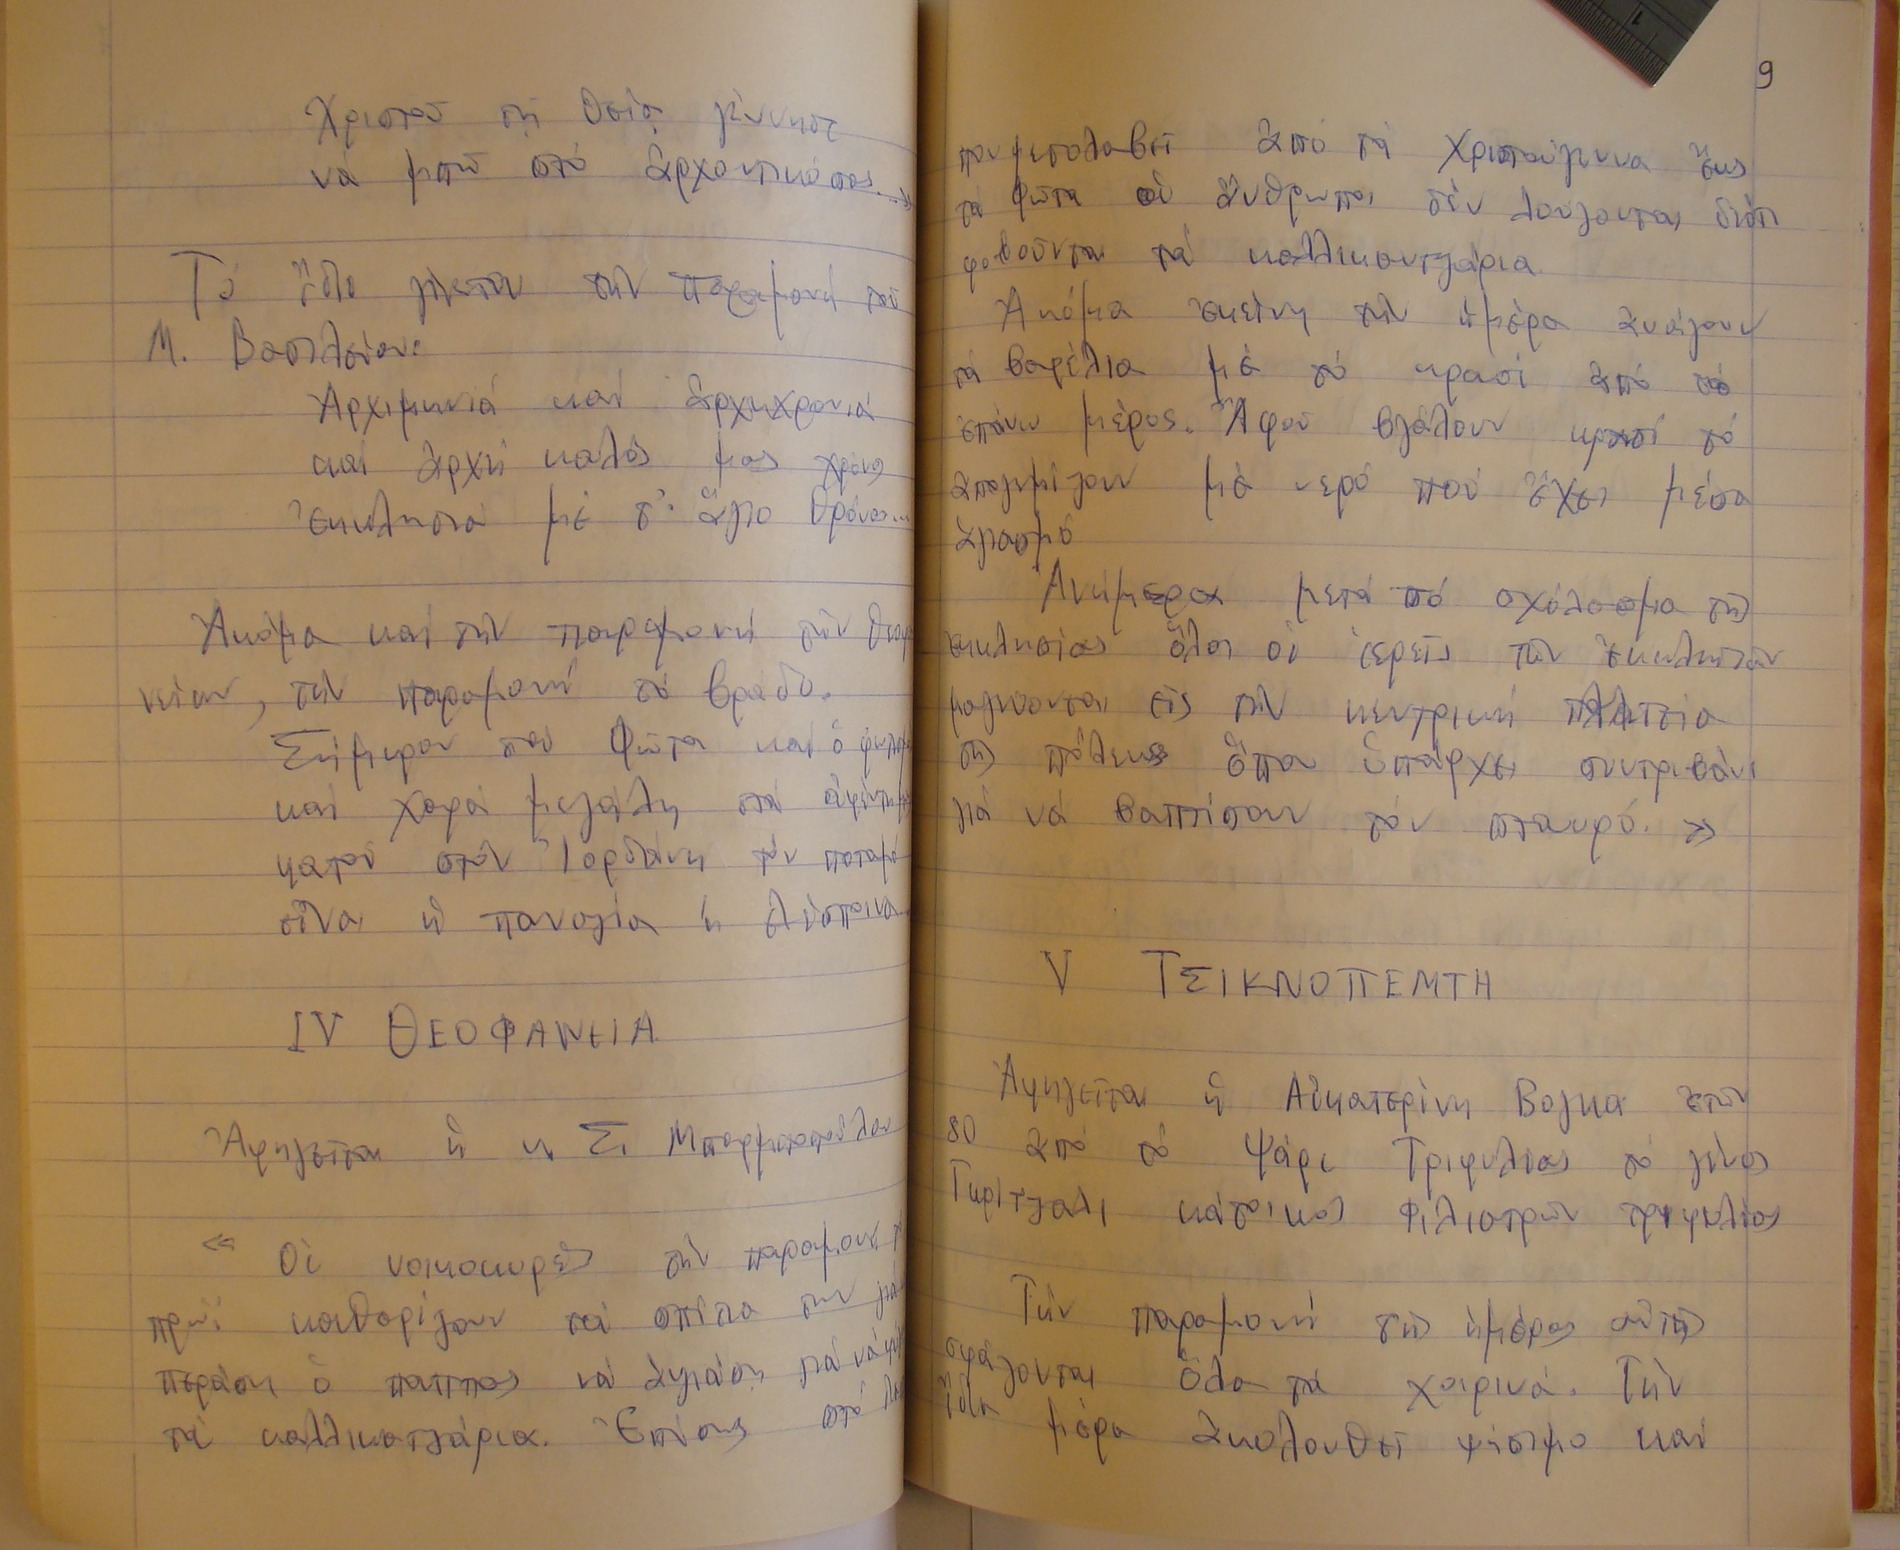 Χριστοῦ τῇ θείᾳ γέννηση
νά μπῶ στό ἀρχοντικό σας...»
Τό ἴδιο γίνεται τήν παραμονή τοῦ
Μ. Βασιλείου:
Ἀρχιμηνιά καί ἀρχηχρονιά
καί ἀρχή καλός μας χρόνος
ἐκκλησιά μέ τ' ἅγιο θρόνος...
Ἀκόμα καί τήν παραμονή τῶν Θεοφα
νείων, τήν παραμονή τό βράδυ.
Σήμερον τού Φῶτα καί ὁ φωτισμ
καί χαρά μεγάλη στά ἀφέντη μ
κατού στόν Ἰορδάνη τόν ποταμό
εἶναι ἡ παναγία ἡ δέσποινα
IV ΘΕΟΦΑΝΕΙΑ
Ἀφηγεῖται ἡ κ. Σ.
« Οἱ νοικοκυρές τήν παραμονή τ
πρωΐ καθαρίζουν τά σπίτια των γιά
περάση ὁ παππας νά ἁγιάση γιά νά φύγ
τά καλλικατζάρια. Ἐπίσης στό
9
που μεσολαβεῖ ἀπό τά Χριστούγεννα ἕως
τά φῶτα οἱ ἄνθρωποι δέν λούζονται διότι
φοβοῦνται τά καλλικαντζάρια.
Ἀκόμα ἐκείνη τήν ἡμέρα ἀνοίγουν
τά βαρέλια μέ τό κρασί ἀπό τό
ἐπάνω μέρος. Ἀφοῦ βγάλουν κρασί τό
ἀπογεμίζουν μέ νερό πού ἔχει μέσα
ἁγιασμό
Ἀνήμερα μετά τό σχόλασμα τῆς
ἐκκλησίας ὅλοι οἱ ἱερεῖς τῶν ἐκκλησιῶν
μαζεύονται εἰς τήν κεντρική πλατεία
τῆς πόλεως ὅπου ὑπάρχει συντριβάνι
γιά νά βαπτίσουν τόν σταυρό. »
V ΤΣΙΚΝΟΠΕΜΤΗ
Ἀφηγεῖται ἡ Αἰκατερίνη Βολκα ετῶν
80 ἀπό τό Ψάρι Τριφυλίας τό γένος
Γκρίτζαλι κάτοικος Φιλιατρῶν τριφυλίας
Τήν παραμονή τῆς ἡμέρας αὐτῆς
σφάζονται ὅλα τά χοιρινά. Τήν
ἴδια μέρα ἀκολουθεῖ ψήσιμο καί